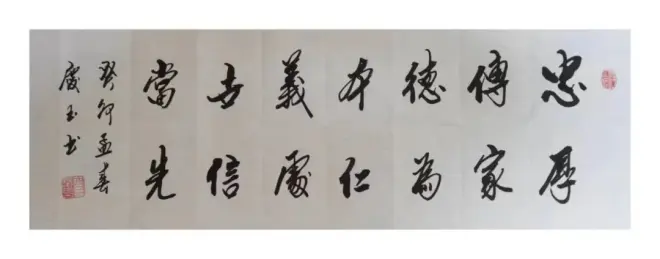 忠厚
傳家
德為
本仁
義處
世信
當先
癸卯孟春
玉书